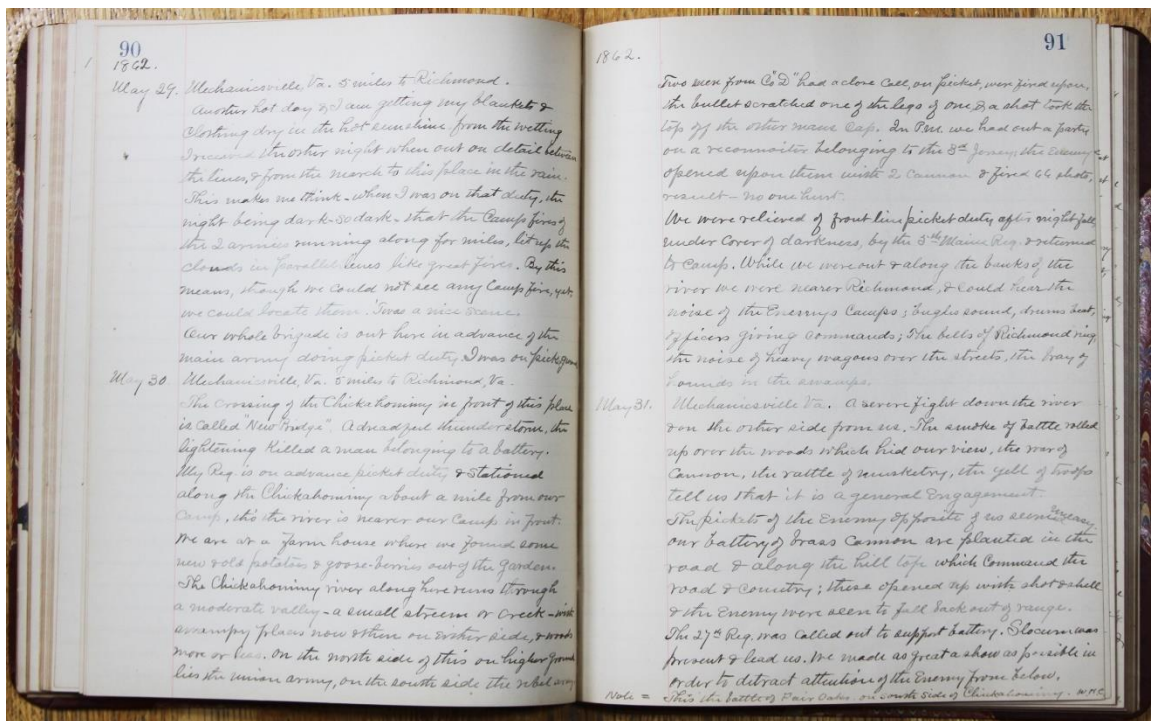 90
1862.
May 29. Mechanicsville Va. 5 miles to Richmond.
Another hot day & I am getting my blankets &
clothing dry in the hot sunshine from the wetting
I received the other night when out on detail between
the lines, & from the march to this place in the rain.
This makes me think - when I was on that duty, the
night being dark - so dark - that the Camp fires of
the 2 armies running along for miles, lit up the
clouds in parallel lines like great fires. By this
means, though we could not see any Camp fire, yet,
we could locate them. 'Twas a nice scene.
Our whole brigade is out here in advance of the
main army doing picket duty, I was on picket
May 30. Mechanicsville, Va. 5 miles to Richmond, Va.
The crossing of the Chickahominy in front of this place
is called "New Bridge". A dreadful thunder storm, the
lightening killed a man belonging to a battery.
My Reg. is on advance picket duty & stationed
along the Chickahominy about a mile from our
camp, tho' the river is nearer our Camp in front.
We are at a farm house where we found some
new & old potatoes & goose-berries out of the Garden.
The Chickahominy river along here runs through
a moderate valley - a small streem or Creek - with
swampy places now & then on either side, & woods
more or less. On the north side of this on higher ground
lies the union army, on the south side the rebel army
91
1862.
Two men from Co "D" had a close Call, on picket, were fired upon,
the bullet scratched one of the legs of one & a shot took the
top off the other mans Cap. In P.M. we had out a party
on a reconnoiter belonging to the 3rd Jersey, the Enemy
opened upon them with 2 Cannon & fired 66 shots,
result - no one hurt.
We were relieved of front line picket duty after night fall
under Cover of darkness, by the 5th Maine Reg. & returned
to Camp. While we were out & along the banks of the
river we were nearer Richmond, & could hear the
noise of the Enemys Camps; bugles sound, drums beat,
officers giving commands; The bells of Richmond ring,
the noise of heavy wagons over the streets, the bray of
hounds in the swamps.
May 31. Mechanicsville Va. A severe fight down the river
& on the other side from us. The smoke of battle rolled
up over the woods which hid our view, the roar of
Cannon, the rattle of musketry, the yell of troops
tell us that it is a general Engagement.
The pickets of the Enemy opposite of us seem uneasy.
our battery of brass Cannon are planted in the
road & along the hill top which Command the
road & Country; these opened up with shot & shell
& the Enemy were seen to fall back out of range.
The 27th Reg. was called out to support battery. Slocum was
present & lead us. We made as great a show as possible in
order to detract attention of the Enemy from below.
Note = This the battle of Fair Oaks. on south side of Chickahominy. W.M.C.